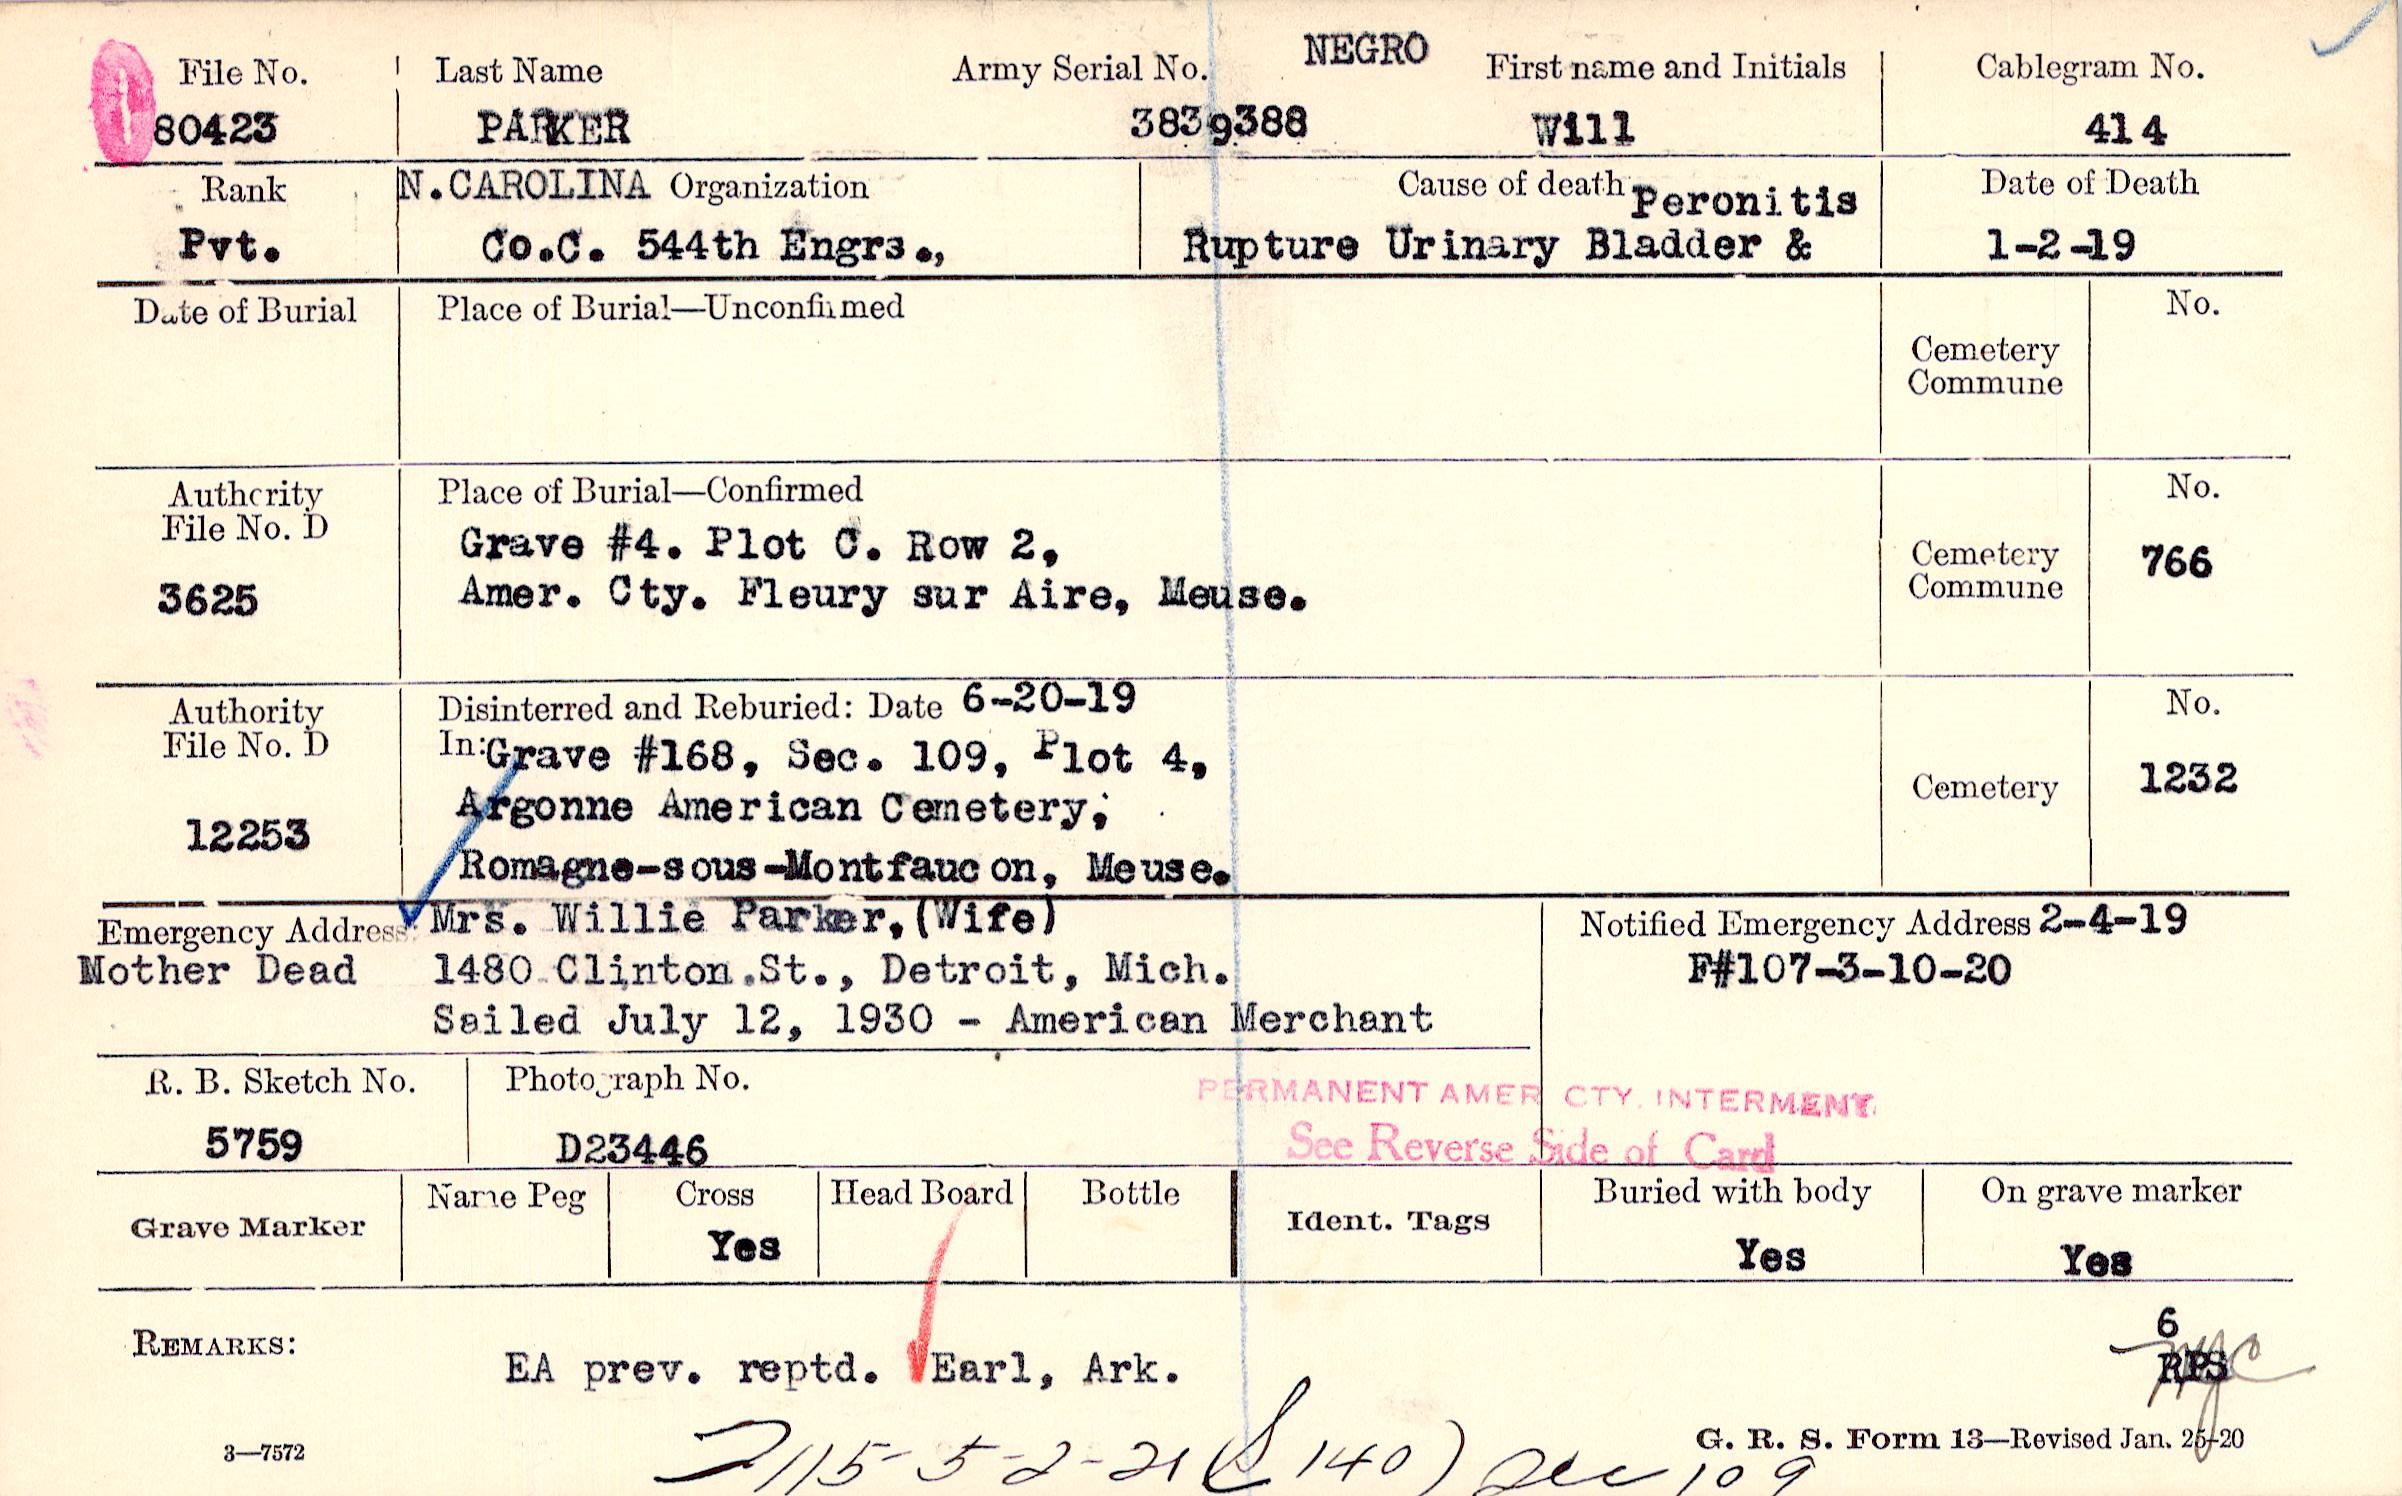 NEGRO
File No. Last Name Army Serial No. First name and Initials Cablegram No.
80423 PARKER 3839388 Will 414
Rank N.CAROLINA Organization Cause of death Peronitis Date of Death
Pvt. Co.C. 544th Engrs., Rupture Urinary Bladder & 1-2-19
Date of Burial Place of Burial—Unconfirmed No.
Cemetery
Commune
Authority Place of Burial—Confirmed No.
File No. D
Grave #4. Plot C. Row 2,
Cemetery 766
Commune
3625 Amer. Cty. Fleury sur Aire, Meuse.
Authority Disinterred and Reburied: Date 6-20-19 No.
File No. D In: Grave #168, Sec. 109, Plot 4,
Cemetery 1232
Argonne American Cemetery,
12253
Romagne-sous-Montfaucon, Meuse.
Emergency Address: Mrs. Willie Parker, (Wife) Notified Emergency Address 2-4-19
Mother Dead 1480 Clinton St., Detroit, Mich. F#107-3-10-20
Sailed July 12, 1930 - American Merchant
R. B. Sketch No. Photograph No.
PERMANENT AMER CTY. INTERMENT
5759 D23446 See Reverse Side of Card
Grave Marker Name Peg Cross Head Board Bottle Ident. Tags Buried with body On grave marker
Yes Yes Yes
6
REMARKS: EA prev. reptd. Earl, Ark. RPS
3—7572 G. R. S. Form 13—Revised Jan. 25-20
115-5-2-21 (S 140) Sec 109